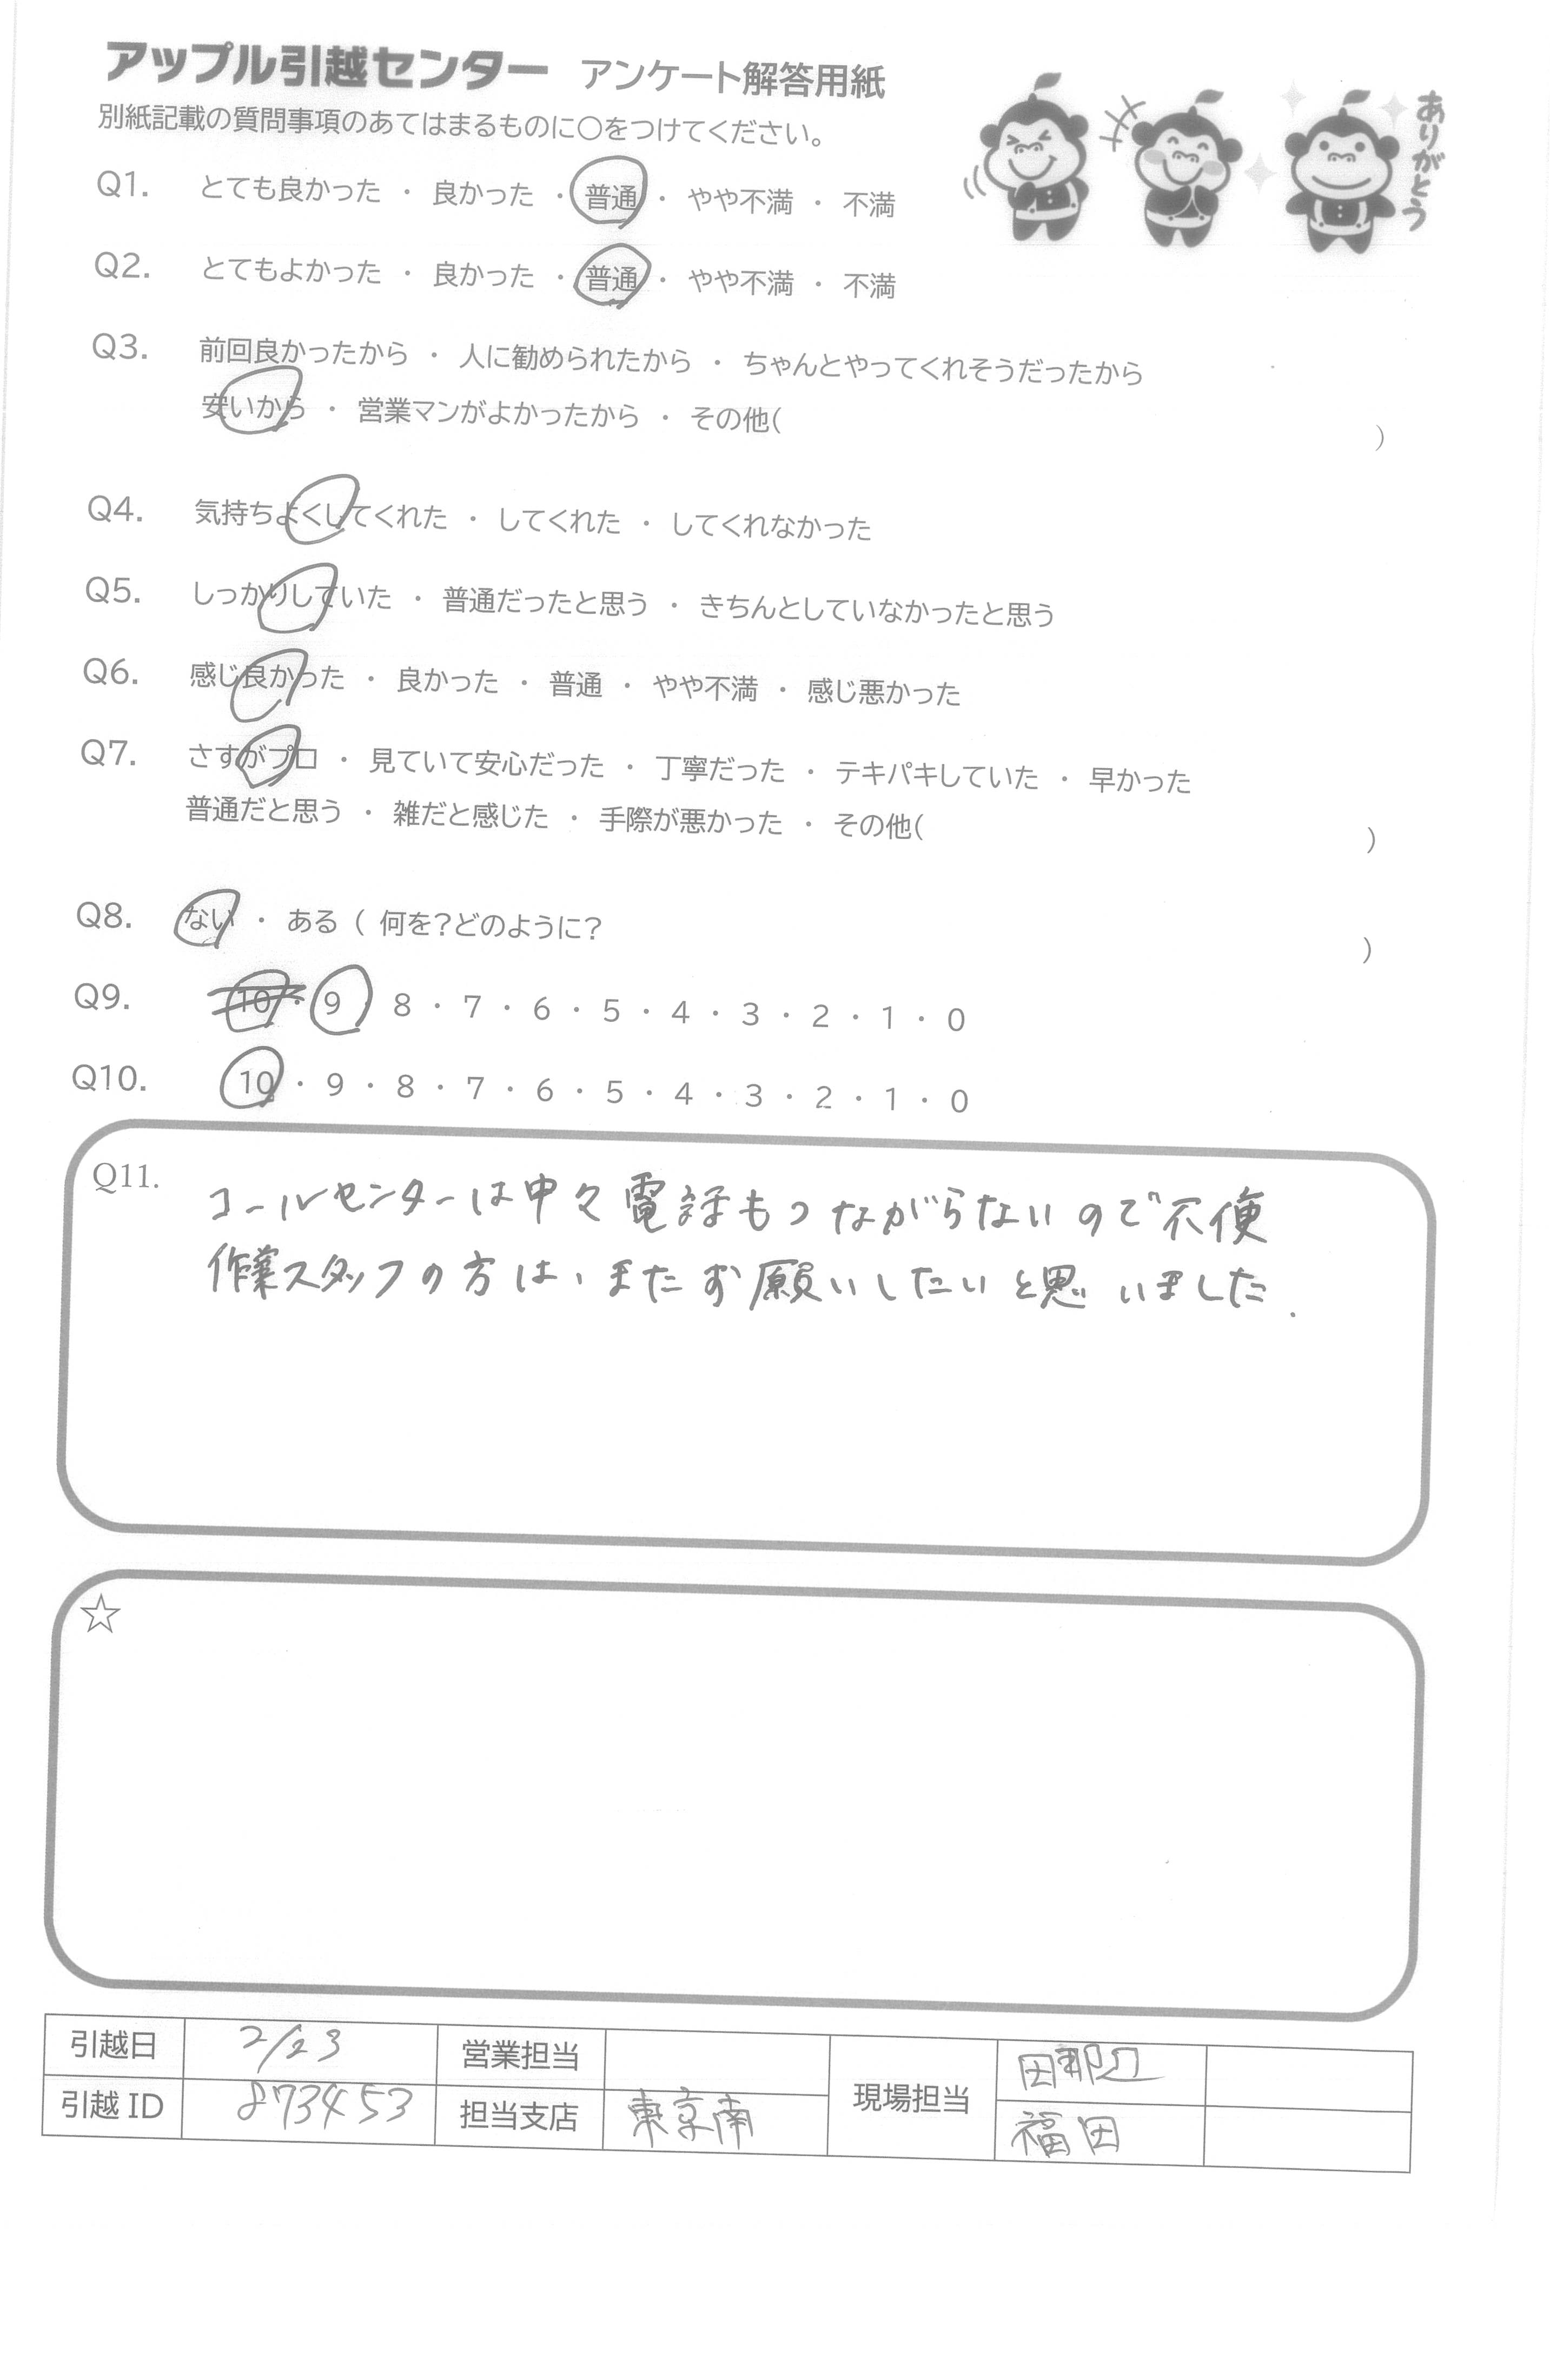 アップル引越センター アンケート解答用紙
別紙記載の質問事項のあてはまるものに○をつけてください。
ありがとう
Q1. とても良かった ・ 良かった ・ 普通 ・ やや不満 ・ 不満
Q2. とてもよかった ・ 良かった ・ 普通 ・ やや不満 ・ 不満
Q3. 前回良かったから ・ 人に勧められたから ・ ちゃんとやってくれそうだったから
安いから ・ 営業マンがよかったから ・ その他( )
Q4. 気持ちよくしてくれた ・ してくれた ・ してくれなかった
Q5. しっかりしていた ・ 普通だったと思う ・ きちんとしていなかったと思う
Q6. 感じ良かった ・ 良かった ・ 普通 ・ やや不満 ・ 感じ悪かった
Q7. さすがプロ ・ 見ていて安心だった ・ 丁寧だった ・ テキパキしていた ・ 早かった
普通だと思う ・ 雑だと感じた ・ 手際が悪かった ・ その他( )
Q8. ない ・ ある ( 何を?どのように? )
Q9. 10 ・ 9 ・ 8 ・ 7 ・ 6 ・ 5 ・ 4 ・ 3 ・ 2 ・ 1 ・ 0
Q10. 10 ・ 9 ・ 8 ・ 7 ・ 6 ・ 5 ・ 4 ・ 3 ・ 2 ・ 1 ・ 0
Q11. コールセンターは中々電話もつながらないので不便
作業スタッフの方は、またお願いしたいと思いました.
☆
引越日 2/23 営業担当 現場担当 田那辺
引越 ID 873453 担当支店 東京南 福田